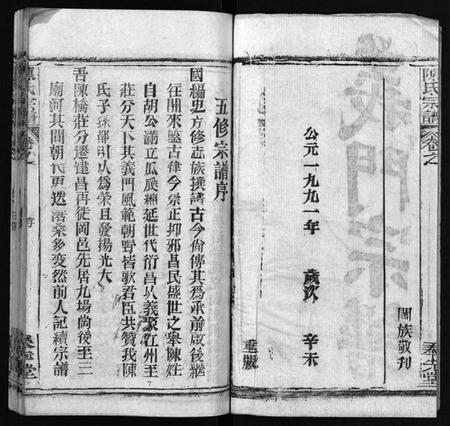 陳氏宗譜
卷之
公元一九九一年
歲次
辛未
重版
闔族敬刊
奉先堂
五修宗譜序
國編史方修志族撰譜古今尚傳其為承前啟後繼
往開來鑒古律今崇正抑邪昌民盛世之舉陳姓
自胡公滿立瓜瓞綿延世代衍昌以義家江州至
莊分天下其義門風範朝野皆歌君臣共贊我陳
氏子孫都引以為榮且發揚光大
吾陳橋莊分遷建昌再徙岡邑先居九場尚後至三
廟河其間朝代更迭滄桑多變然前人記續宗譜
陳氏宗譜
卷之
序
奉先堂